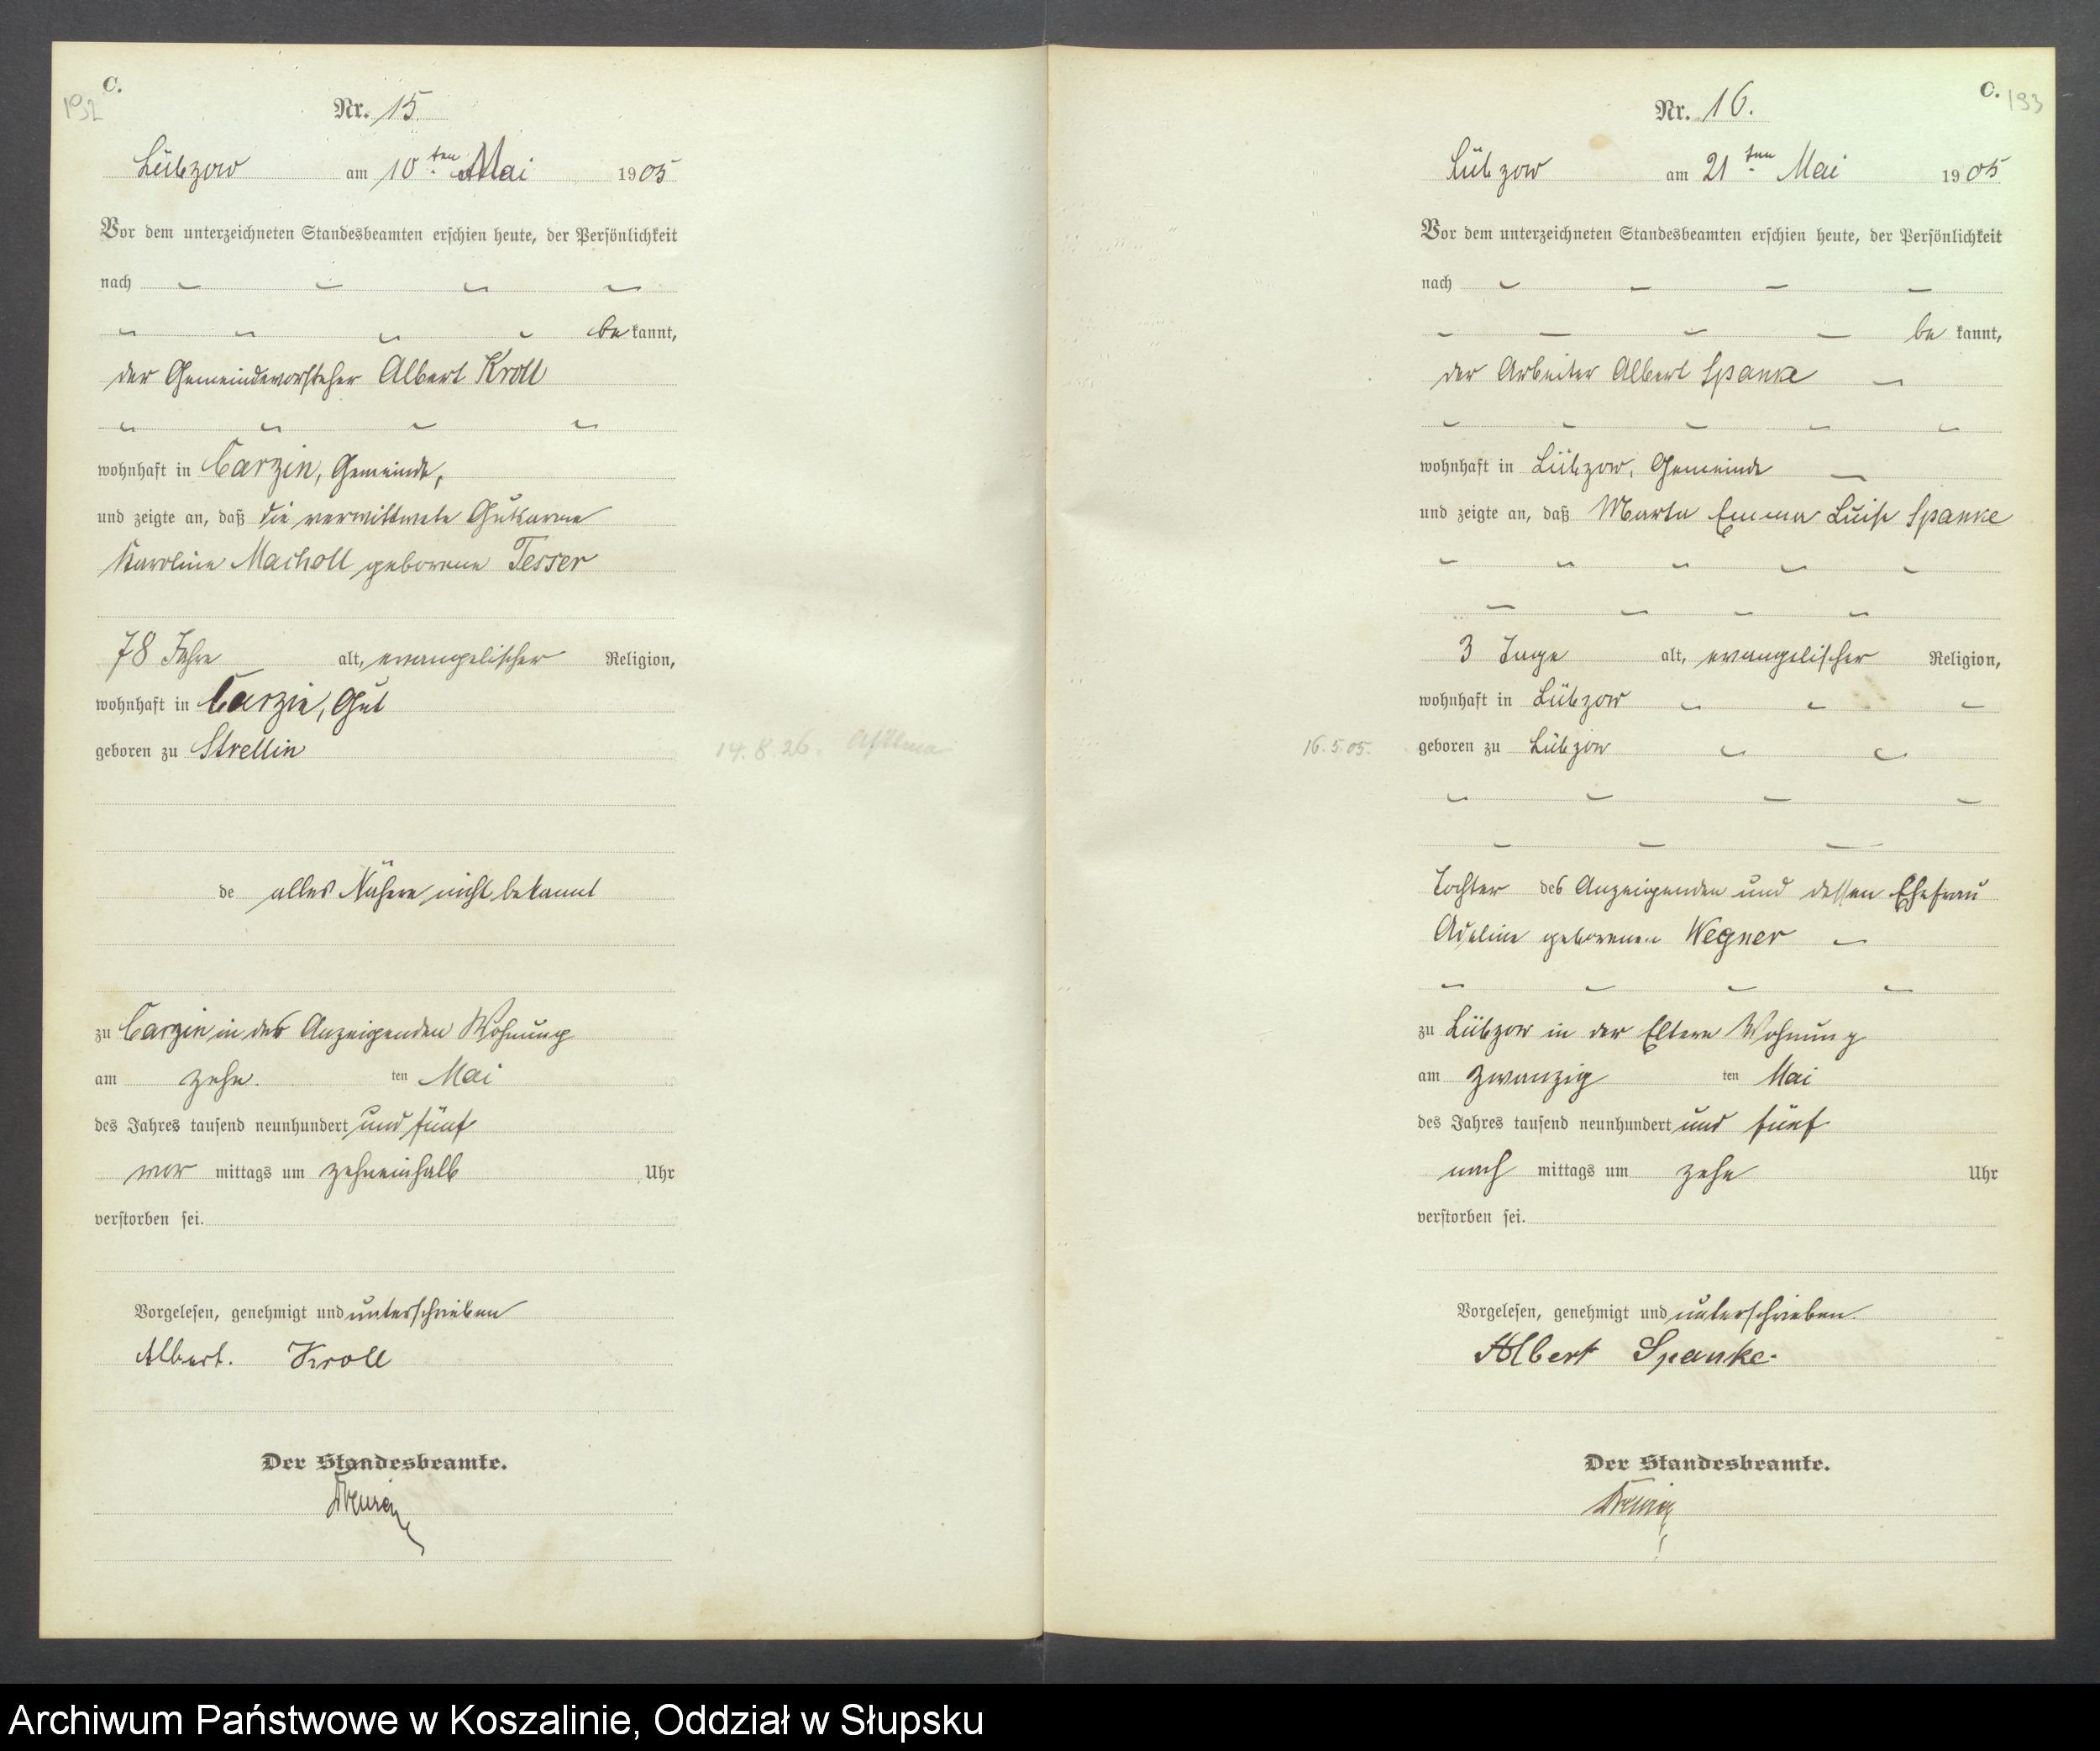 C.
192
Nr. 15.
Lübzow am 10ten Mai 1905
Vor dem unterzeichneten Standesbeamten erschien heute, der Persönlichkeit
nach
be kannt,
der Gemeindevorsteher Albert Kroll
wohnhaft in Carzin, Gemeinde,
und zeigte an, daß die verwittwete Gutsarme
Karoline Macholl geborene Tesser
78 Jahre alt, evangelischer Religion,
wohnhaft in Carzin, Gut
geboren zu Strellin
14.8.26.
de alles Nähere nicht bekannt
zu Carzin in des Anzeigenden Wohnung
am zehn ten Mai
des Jahres tausend neunhundert und fünf
vor mittags um zehneinhalb Uhr
verstorben sei.
Vorgelesen, genehmigt und unterschrieben
Albert. Kroll
Der Standesbeamte.
C.
193
Nr. 16.
Lübzow am 21ten Mai 1905
Vor dem unterzeichneten Standesbeamten erschien heute, der Persönlichkeit
nach
be kannt,
der Arbeiter Albert Spanke
wohnhaft in Lübzow, Gemeinde
und zeigte an, daß Marta Emma Luise Spanke
3 Tage alt, evangelischer Religion,
wohnhaft in Lübzow
16.5.05. geboren zu Lübzow
Tochter des Anzeigenden und dessen Ehefrau
Adeline geborenen Wegner
zu Lübzow in der Eltern Wohnung
am zwanzig ten Mai
des Jahres tausend neunhundert und fünf
nach mittags um zehn Uhr
verstorben sei.
Vorgelesen, genehmigt und unterschrieben.
Albert Spanke.
Der Standesbeamte.
Archiwum Państwowe w Koszalinie, Oddział w Słupsku